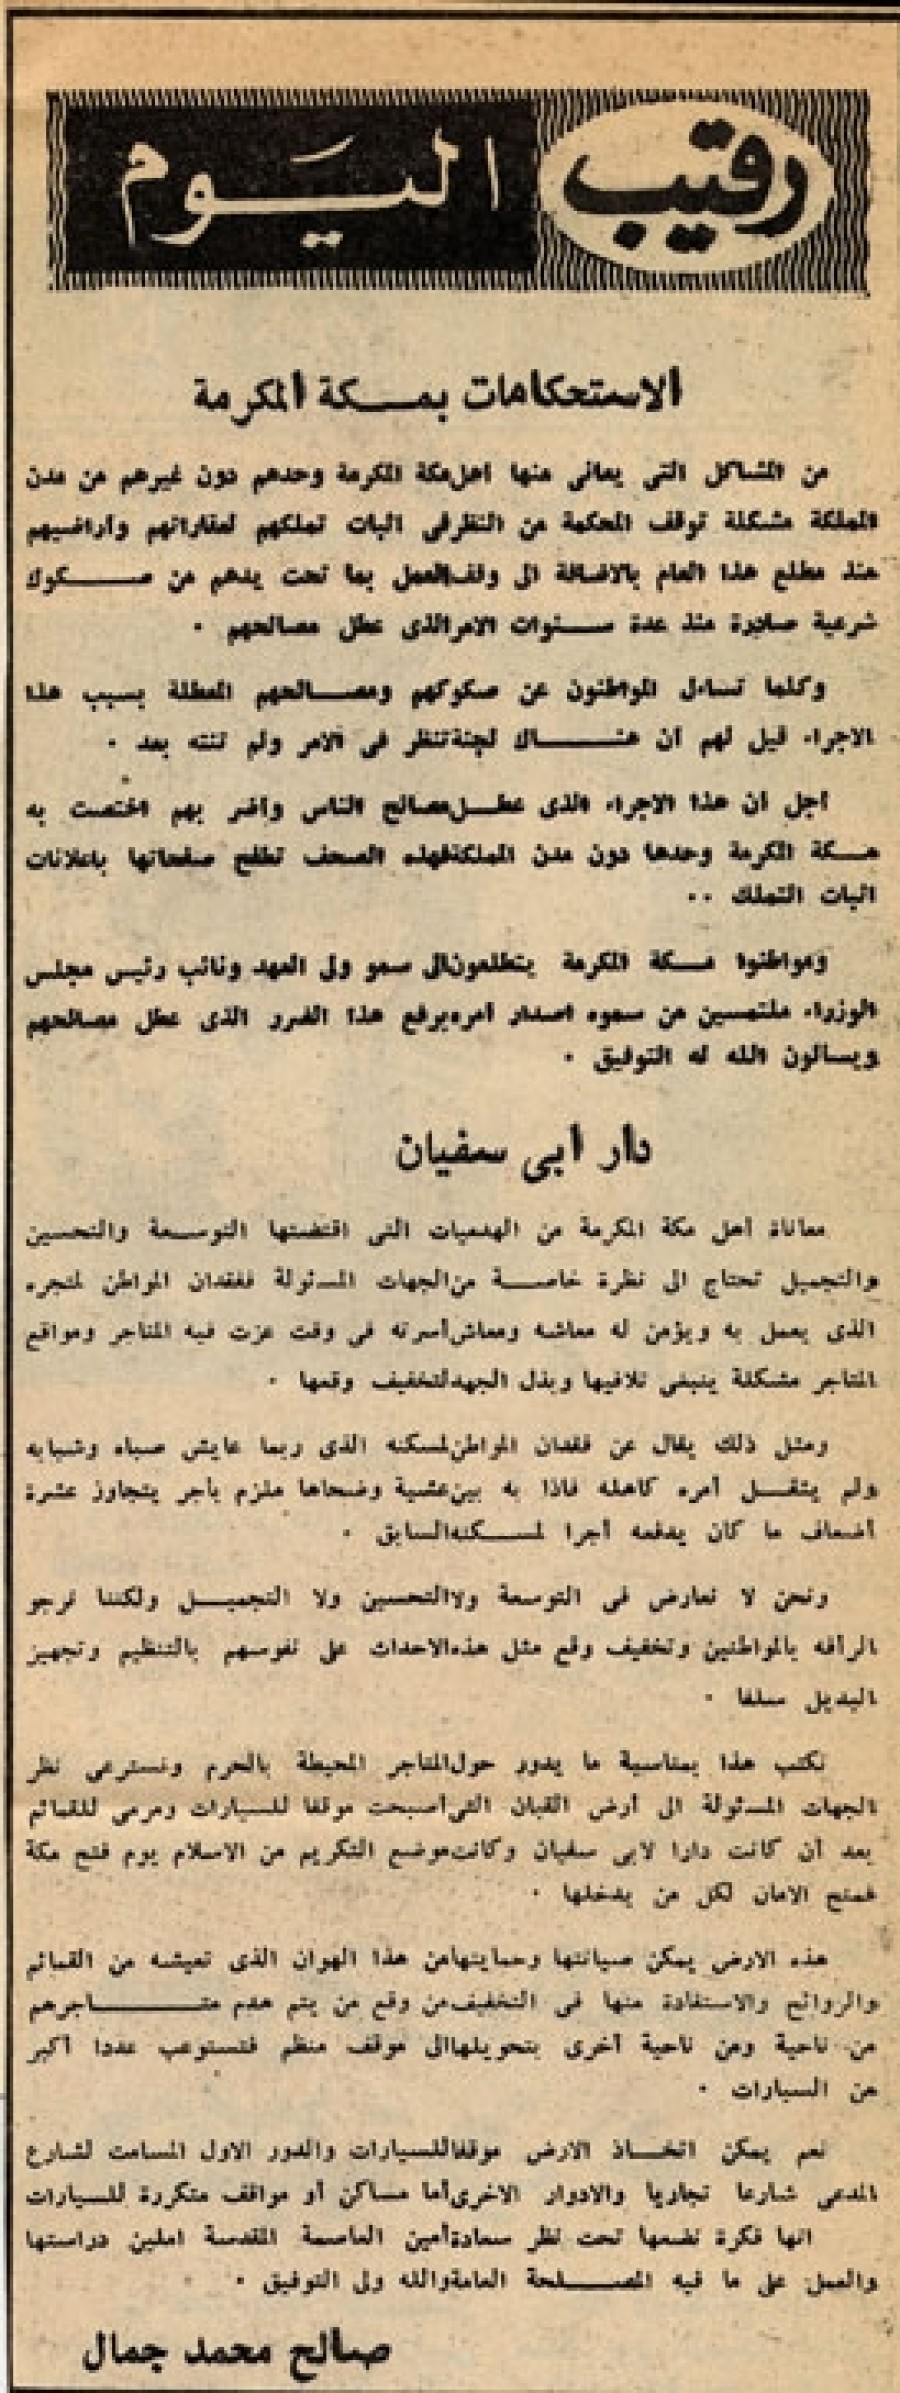 رقيب اليوم
الاستحكامات بمكة المكرمة
من المشاكل التى يعانى منها اهل مكة المكرمة وحدهم دون غيرهم من مدن
المملكة مشكلة توقف المحكمة من النظر فى اثبات تملكهم لعقاراتهم وأراضيهم
منذ مطلع هذا العام بالاضافة الى وقف العمل بما تحت يدهم من صكوك
شرعية صادرة منذ عدة سنوات الامر الذى عطل مصالحهم .
وكلما تساءل المواطنون عن صكوكهم ومصالحهم المعطلة بسبب هذا
الاجراء قيل لهم أن هناك لجنة تنظر فى الامر ولم تنته بعد .
أجل ان هذا الاجراء الذى عطل مصالح الناس وأضر بهم اختصت به
مكة المكرمة وحدها دون مدن المملكة فهذه الصحف تطفح صفحاتها باعلانات
اثبات التملك ..
ومواطنوا مكة المكرمة يتطلعون الى سمو ولى العهد ونائب رئيس مجلس
الوزراء ملتمسين من سموه اصدار أمره برفع هذا الضرر الذى عطل مصالحهم
ويسالون الله له التوفيق .
دار أبى سفيان
معاناة أهل مكة المكرمة من الهدميات التى اقتضتها التوسعة والتحسين
والتجميل تحتاج الى نظرة خاصة من الجهات المسئولة ففقدان المواطن لمتجره
الذى يعمل به ويؤمن له معاشه ومعاش أسرته فى وقت عزت فيه المتاجر ومواقع
المتاجر مشكلة ينبغى تلافيها وبذل الجهد لتخفيف وقعها .
ومثل ذلك يقال عن فقدان المواطن لمسكنه الذى ربما عايش صباه وشبابه
ولم يثقل أمره كاهله فاذا به بين عشية وضحاها ملزم بأجر يتجاوز عشرة
أضعاف ما كان يدفعه أجرا لمسكنه السابق .
ونحن لا نعارض فى التوسعة ولا التحسين ولا التجميل ولكننا نرجو
الرأفه بالمواطنين وتخفيف وقع مثل هذه الاحداث على نفوسهم بالتنظيم وتجهيز
البديل سلفا .
نكتب هذا بمناسبة ما يدور حول المتاجر المحيطة بالحرم ونسترعى نظر
الجهات المسئولة الى أرض القبان التى أصبحت موقفا للسيارات ومرمى للقمائم
بعد أن كانت دارا لابى سفيان وكانت موضع التكريم من الاسلام يوم فتح مكة
فمنح الامان لكل من يدخلها .
هذه الارض يمكن صيانتها وحمايتها من هذا الهوان الذى تعيشه من القمائم
والروائح والاستفادة منها فى التخفيف من وقع من يتم هدم متاجرهم
من ناحية ومن ناحية أخرى بتحويلها الى موقف منظم فتستوعب عددا أكبر
من السيارات .
نعم يمكن اتخاذ الارض موقفا للسيارات والدور الاول المسامت لشارع
المدعى شارعا تجاريا والادوار الاخرى أما مساكن أو مواقف متكررة للسيارات
انها فكرة نضعها تحت نظر سعادة أمين العاصمة المقدسة املين دراستها
والعمل على ما فيه المصلحة العامة والله ولى التوفيق .
صالح محمد جمال